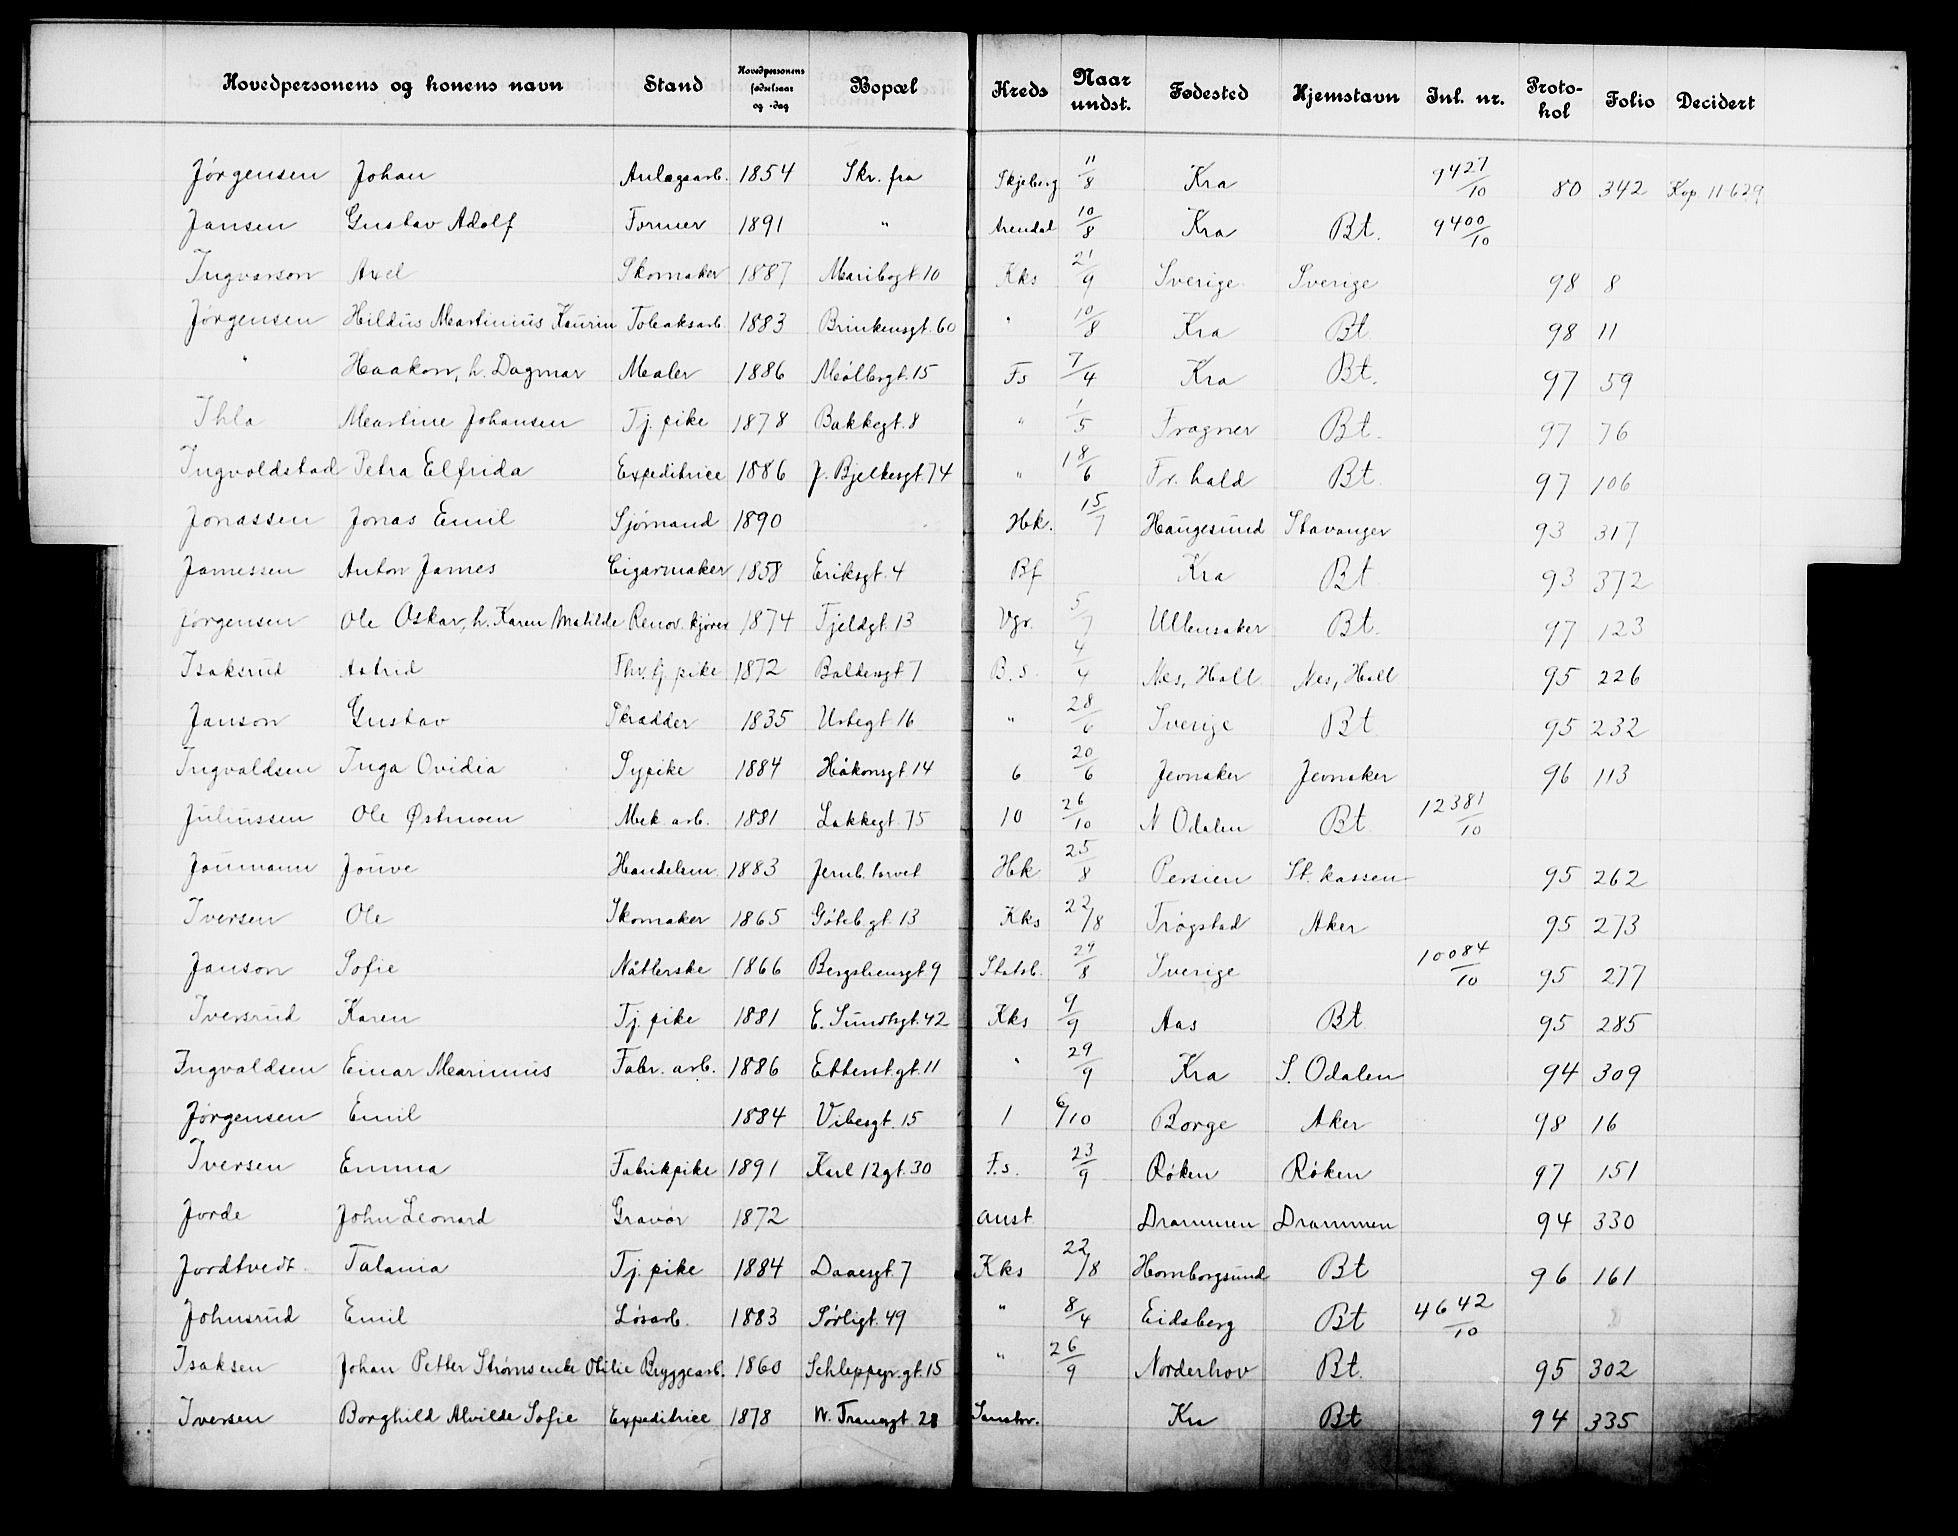 Hovedpersonens og konens navn Stand Hovedpersonens fødselsaar og -dag Bopæl Kreds Naar undst. Fødested Hjemstavn Inl. nr. Protokol Folio Decidert
Jørgensen Johan Anlægsarb. 1854 Skr. fra Skjeberg 11/8 Kra 9427/10 80 342 Kop 11-629
Jansen Gustav Adolf Former 1891 " Arendal 10/8 Kra Bt. 9400/10
Ingvarson Axel Skomaker 1887 Maribogt. 10 Kks 21/9 Sverige Sverige 98 8
Jørgensen Hildus Martinius Kaurin Tobaksarb. 1883 Brinkensgt. 60 " 10/8 Kra Bt 98 11
" Haakon, h. Dagmar Maler 1886 Møllergt. 15 Fs 7/4 Kra Bt. 97 59
Ihla Martine Johansen Tj. pike 1878 Bakkegt. 8 " 1/5 Frogner Bt. 97 76
Ingvoldstad Petra Elfrida Expeditrice 1886 J. Bjelkesgt. 74 " 18/6 Fr. hald Bt. 97 106
Jonassen Jonas Emil Sjømand 1890 Hk. 15/7 Haugesund Stavanger 93 317
Jamessen Anton James Cigarmaker 1858 Eriksgt. 4 Bf Kra Bt 93 372
Jørgensen Ole Oskar, h. Karen Matilde Renov. kjører 1874 Fjeldgt. 13 Vgr. 5/7 Ullensaker Bt. 97 123
Isaksrud Astrid Fhv. tj. pike 1872 Baldersgt 7 B. s. 4/4 Nes, Hall. Nes, Hall 95 226
Janson Gustav Skrædder 1835 Urtegt 16 " 28/6 Sverige Bt 95 232
Ingvaldsen Inga Ovidia Sypike 1884 Håkonsgt 14 6 20/6 Jevnaker Jevnaker 96 113
Juliussen Ole Østmoen Mek. arb. 1881 Lakkegt. 75 10 26/10 N Odalen Bt 12381/10
Joumann Jouve Handelsm. 1883 Jernb. torvet Hk 25/8 Persien St. kassen 95 262
Iversen Ole Skomaker 1865 Gøteb.gt. 13 Kks 22/8 Trøgstad Aker 95 273
Janson Sofie Nåtlerske 1866 Bergsliensgt. 9 Statsb. 24/8 Sverige 10084/10 95 277
Iversrud Karen Tj. pike 1881 E. Sundtsgt. 42 Kks 9/9 Aas Bt 95 285
Ingvaldsen Einar Marinius Fabr. arb. 1886 Etterst.gt. 11 " 29/9 Kra S. Odalen 94 309
Jørgensen Emil 1884 Vibesgt. 15 1 6/10 Borge Aker 98 16
Iversen Emma Fabrikpike 1891 Karl 12gt. 30 F.s. 23/9 Røken Røken 97 151
Jorde John Leonard Gravør 1872 anst Drammen Drammen 94 330
Jordtvedt Talania Tj. pike 1884 Daaesgt. 7 Kks 22/8 Homborgsund Bt 96 161
Johnsrud Emil Løsarb. 1883 Sørligt. 49 " 8/4 Eidsberg Bt 4642/10
Isaksen Johan Petter Strøms enke Otilie Bryggearb. 1860 Schleppegr.gt. 15 " 26/9 Norderhov Bt. 95 302
Iversen Borghild Alvilde Sofie Expeditrice 1878 W. Tranesgt. 28 Kra Bt 94 335